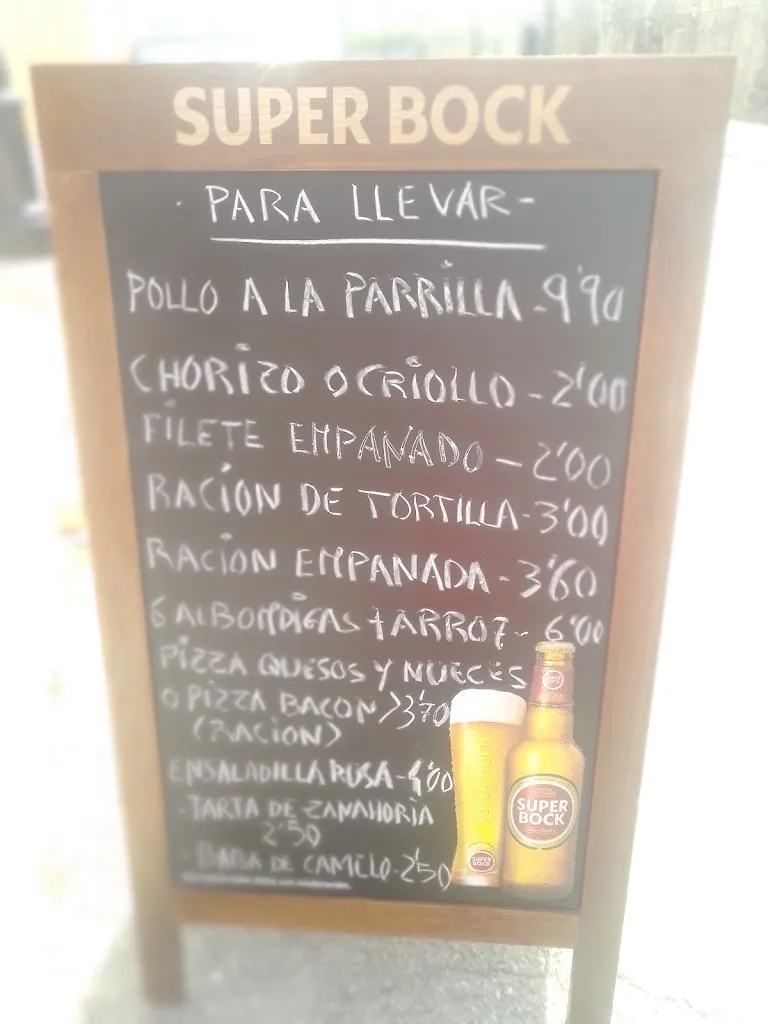 SUPER BOCK
- PARA LLEVAR -
POLLO A LA PARRILLA - 9'90
CHORIZO O CRIOLLO - 2'00
FILETE EMPANADO - 2'00
RACION DE TORTILLA - 3'00
RACION EMPANADA - 3'60
6 ALBONDIGAS + ARROZ - 6'00
PIZZA QUESOS Y NUECES
O PIZZA BACON > 3'70
(RACION)
ENSALADILLA RUSA - 4'00
- TARTA DE ZANAHORIA
2'50
- BABA DE CAMELO - 2'50
SUPER
BOCK
SUPER
BOCK